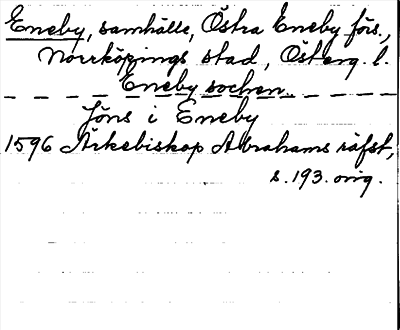 Eneby, samhälle, Östra Eneby förs.,
Norrköpings stad, Österg. l.
Eneby socken.
Jöns i Eneby
1596 Ärkebiskop Abrahams räfst,
s. 193. orig.